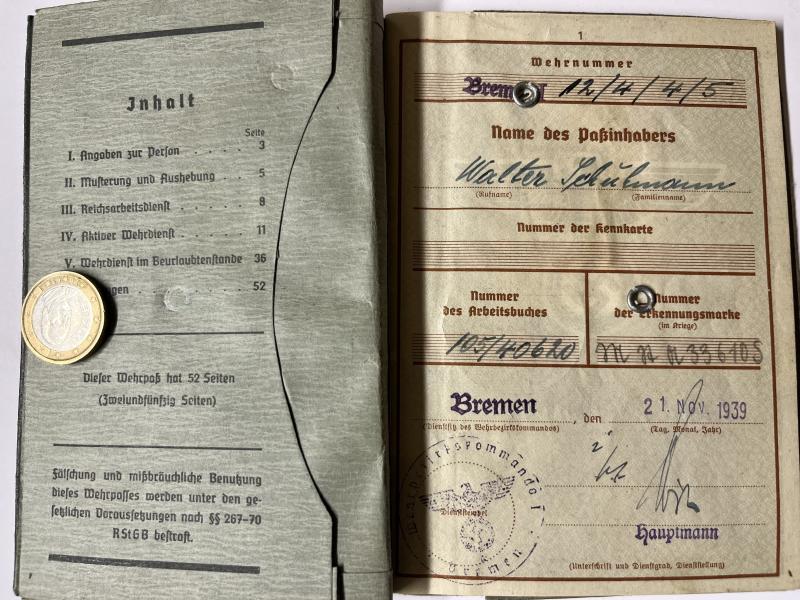 Inhalt
Seite
I. Angaben zur Person . . . . . 3
II. Musterung und Aushebung . . . 5
III. Reichsarbeitsdienst . . . . . 8
IV. Aktiver Wehrdienst . . . . . 11
V. Wehrdienst im Beurlaubtenstande 36
gen . . . . . . . . 52
Dieser Wehrpaß hat 52 Seiten
(Zweiundfünfzig Seiten)
Fälschung und mißbräuchliche Benutzung
dieses Wehrpasses werden unter den ge-
setzlichen Voraussetzungen nach §§ 267-70
RStGB bestraft.
1
Wehrnummer
Bremen 12/4/4/5
Name des Paßinhabers
Walter Schulmann
(Rufname) (Familienname)
Nummer der Kennkarte
Nummer
des Arbeitsbuches
105/40620
Nummer
der Erkennungsmarke
(im Kriege)
336105
Bremen, den 21. Nov. 1939
(Dienstsitz des Wehrbezirkskommandos) (Tag, Monat, Jahr)
Wehrbezirkskommando I
Dienststempel
Bremen
Hauptmann
(Unterschrift und Dienstgrad, Dienststellung)